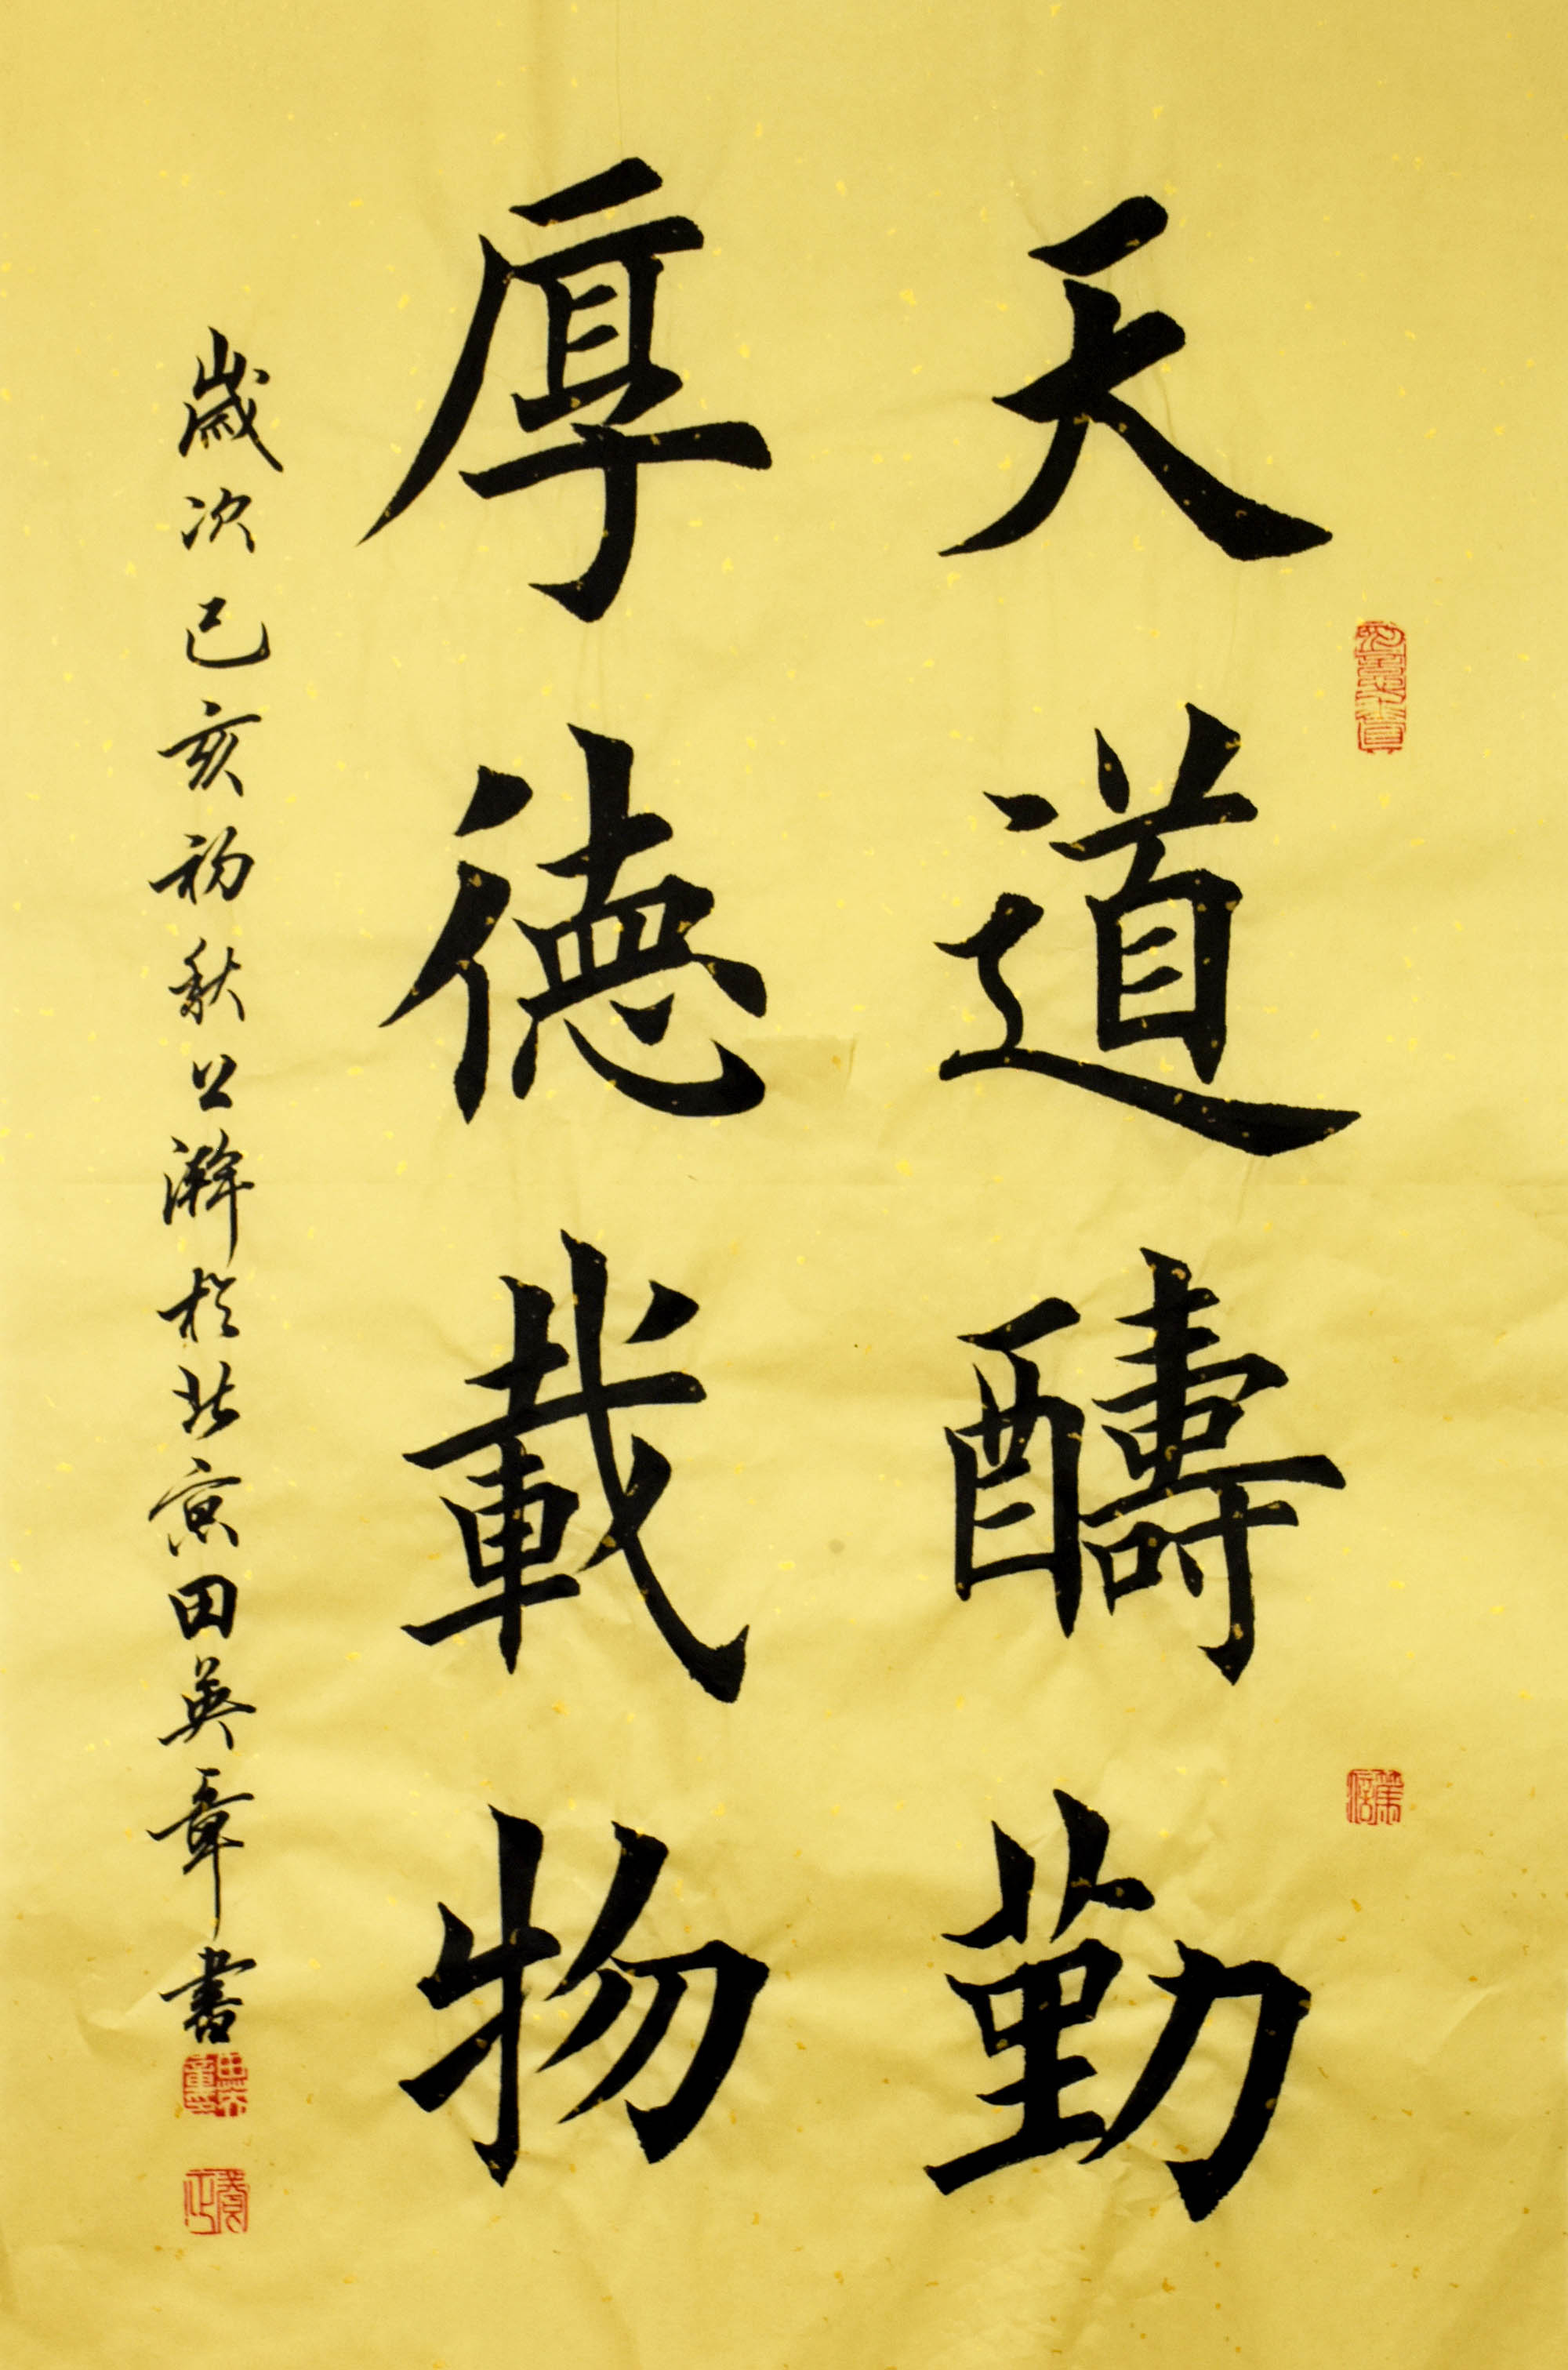 天道醻勤
厚德載物
歲次己亥初秋公澣於北京田英章書